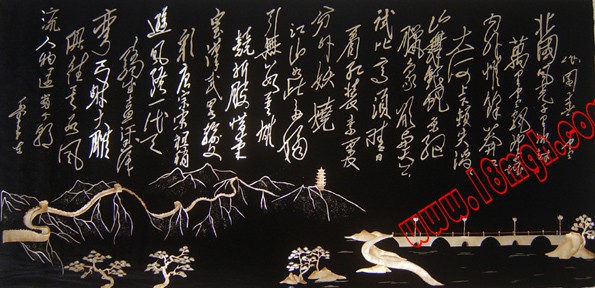 沁园春 雪
北国风光千里冰封
萬里雪飘望长城
内外惟馀莽莽
大河上下顿失滔滔
山舞银蛇原驰
腊象欲与天公
试比高须晴日
看红装素裹
分外妖娆
江山如此多娇
引無数英雄
竞折腰惜秦
皇汉武略输文
彩唐宗宋祖稍
逊风骚一代天
骄成吉思汗只识
弯弓射大雕
俱往矣数风
流人物还看今朝
毛泽东
www.18mgh.com